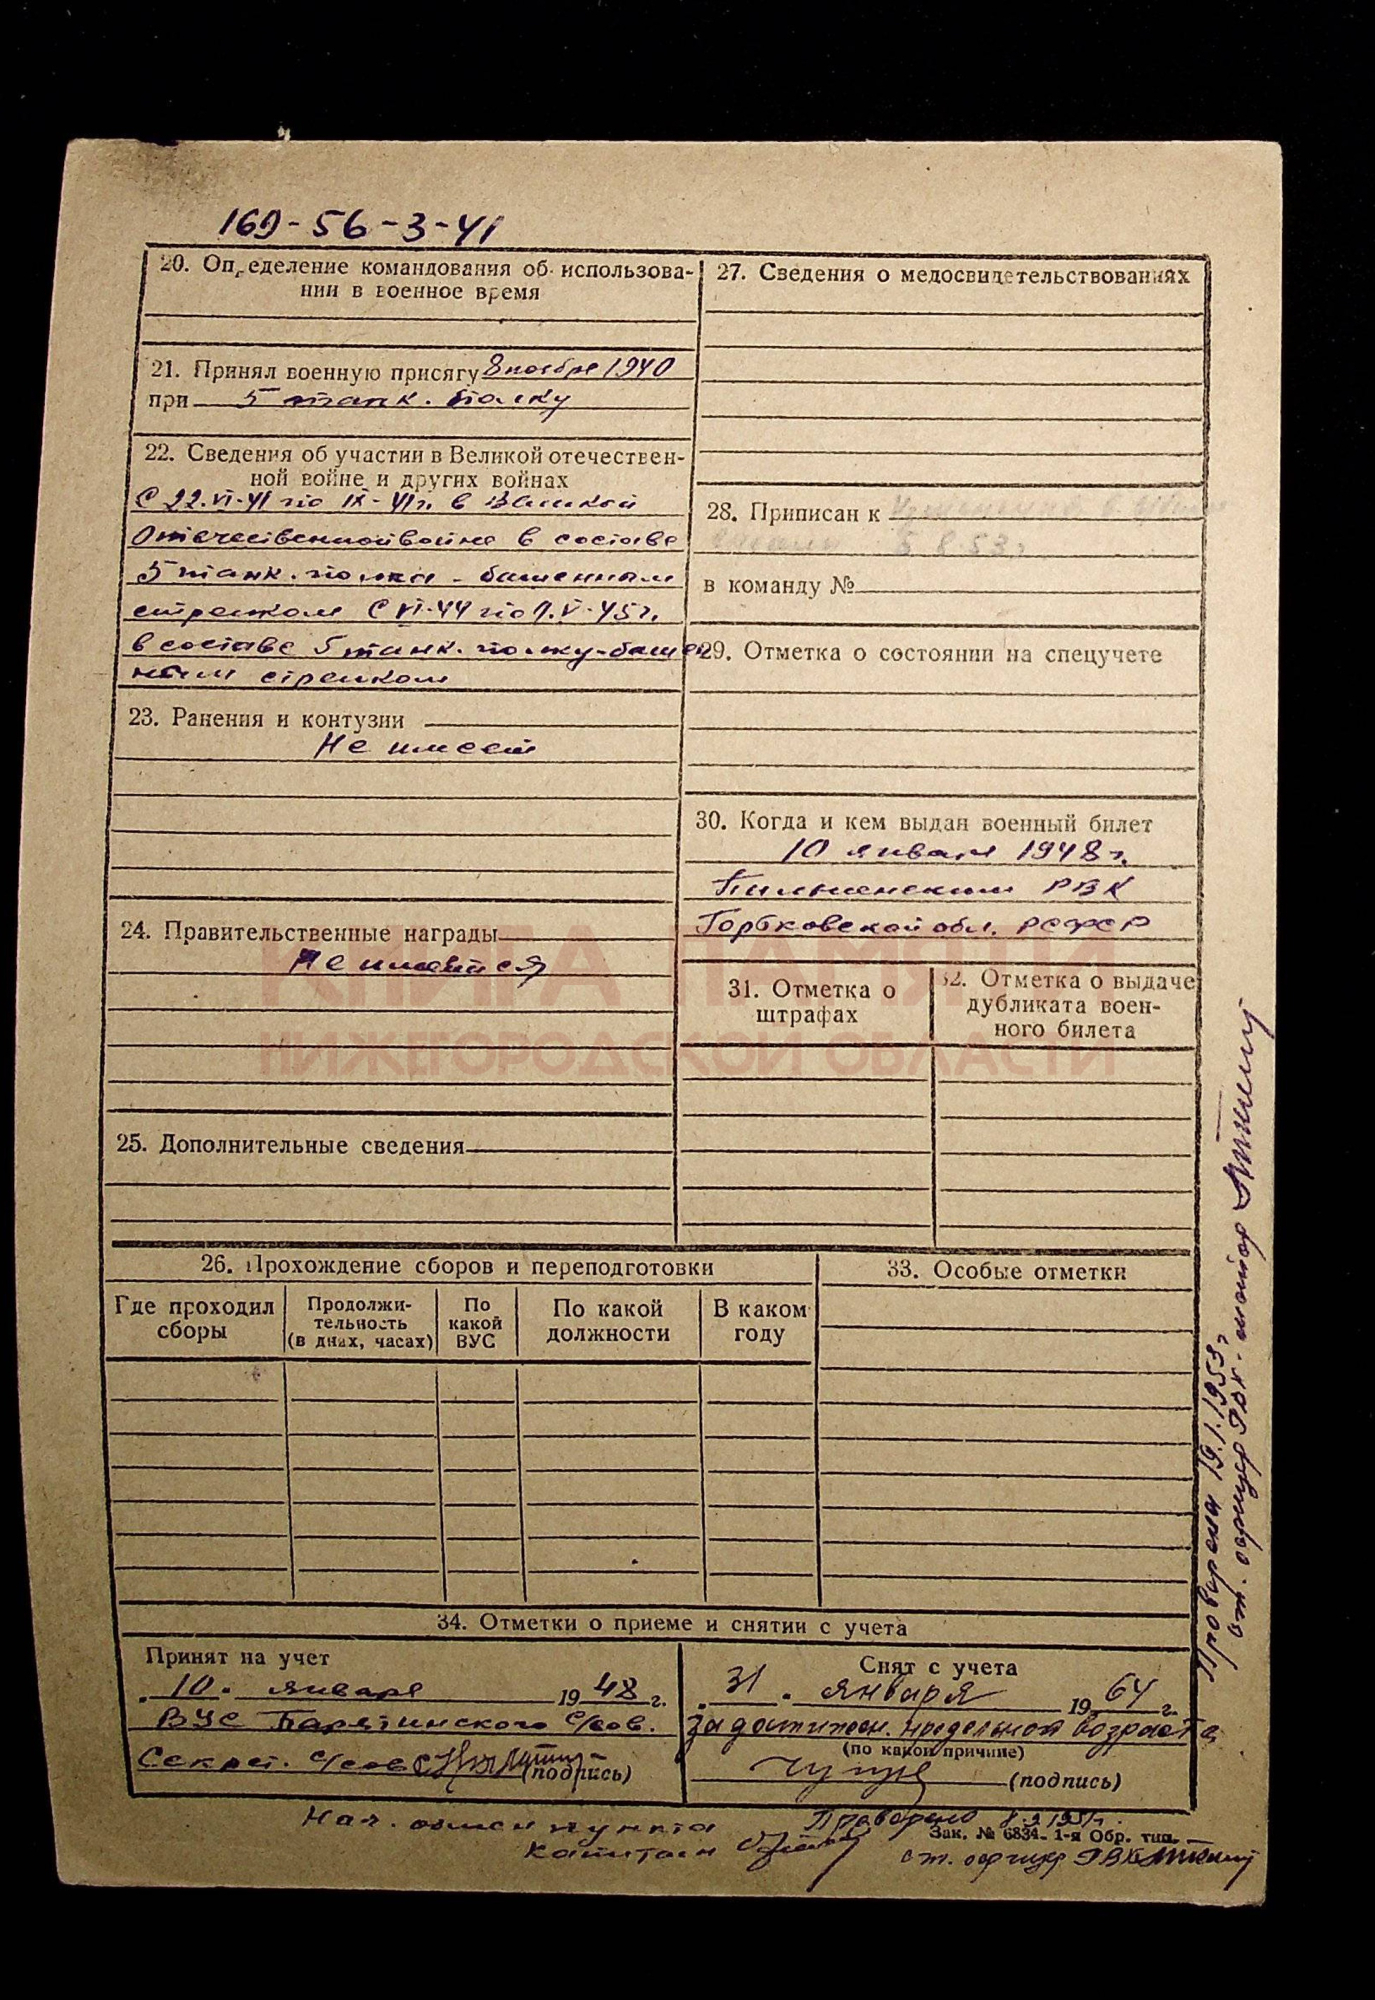 169-56-3-41
20. Определение командования об использова-
нии в военное время
21. Принял военную присягу 8 ноября 1940
при 5 танк. полку
22. Сведения об участии в Великой отечествен-
ной войне и других войнах
С 22.VI-41 по IX-41г. в Великой
Отечественной войне в составе
5 танк. полка - башенным
стрелком С VI-44 по 9.V-45г.
в составе 5 танк. полку-башен
ным стрелком
23. Ранения и контузии
Не имеет
24. Правительственные награды
Не имеется
25. Дополнительные сведения
27. Сведения о медосвидетельствованиях
28. Приписан к
5.8.53г
в команду №
29. Отметка о состоянии на спецучете
30. Когда и кем выдан военный билет
10 января 1948г.
Пильненским РВК
Горьковской обл. РСФСР
31. Отметка о
штрафах
32. Отметка о выдаче
дубликата воен-
ного билета
КНИГА ПАМЯТИ
НИЖЕГОРОДСКОЙ ОБЛАСТИ
26. Прохождение сборов и переподготовки
Где проходил
сборы
Продолжи-
тельность
(в днях, часах)
По
какой
ВУС
По какой
должности
В каком
году
33. Особые отметки
34. Отметки о приеме и снятии с учета
Принят на учет
"10" января 1948 г.
ВУС с/сов.
Секрет. с/сов
(подпись)
Снят с учета
"31" января 1964 г.
за достижен. предельного возраста
(по какой причине)
(подпись)
Нач. обмен пункта
капитан
Проверено
Зак. № 6834. 1-я Обр. тип.
ст. офицер РВК
Проверена 19.1.1953г
ст. офицер РВК - майор